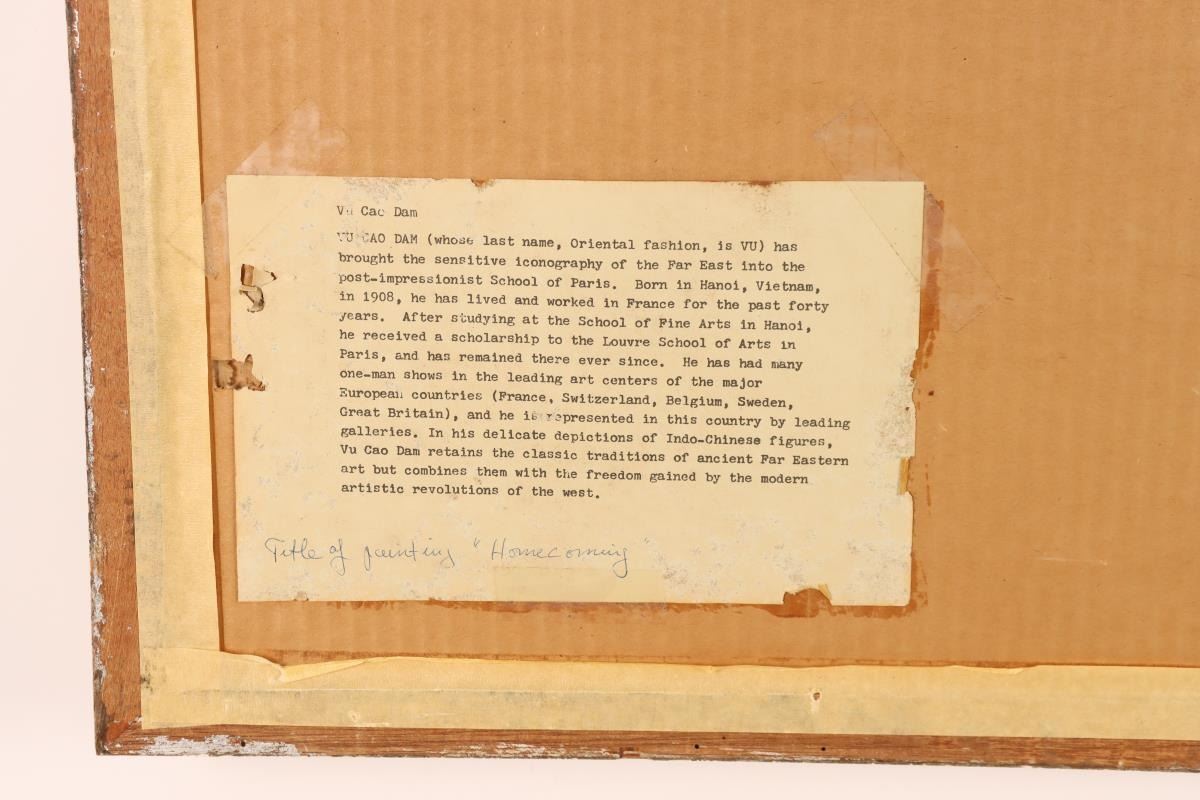 Vu Cao Dam
VU CAO DAM (whose last name, Oriental fashion, is VU) has
brought the sensitive iconography of the Far East into the
post-impressionist School of Paris. Born in Hanoi, Vietnam,
in 1908, he has lived and worked in France for the past forty
years. After studying at the School of Fine Arts in Hanoi,
he received a scholarship to the Louvre School of Arts in
Paris, and has remained there ever since. He has had many
one-man shows in the leading art centers of the major
European countries (France, Switzerland, Belgium, Sweden,
Great Britain), and he is represented in this country by leading
galleries. In his delicate depictions of Indo-Chinese figures,
Vu Cao Dam retains the classic traditions of ancient Far Eastern
art but combines them with the freedom gained by the modern
artistic revolutions of the west.
Title of painting "Homecoming"